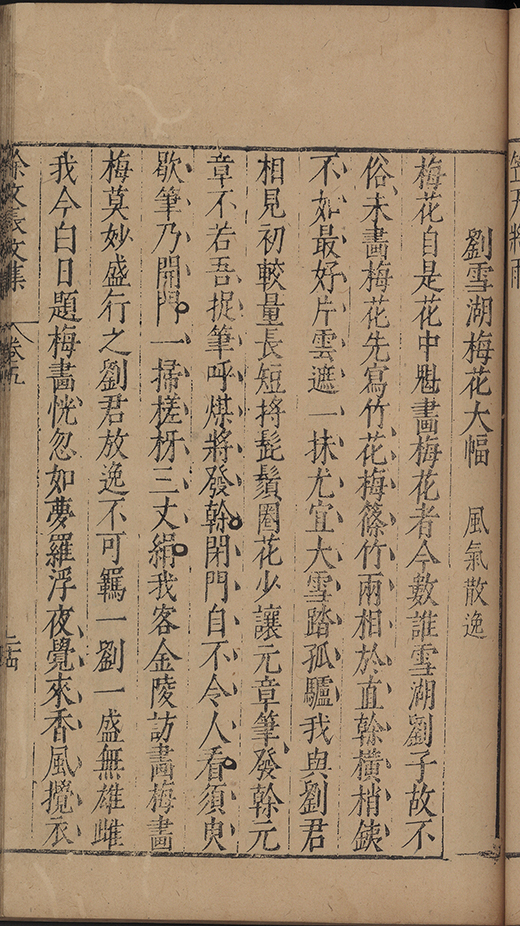 劉雪湖梅花大幅 風氣散逸
梅花自是花中魁畫梅花者今數誰雪湖劉子故不
俗未畫梅花先寫竹花梅篠竹兩相於直榦橫梢鐵
不如最好片雲遮一抹尤宜大雪踏孤驢我與劉君
相見初較量長短捋髭鬚圈花少讓元章筆發榦元
章不若吾捉筆呼煤將發榦閉門自不令人看須臾
歇筆乃開門一掃槎枒三丈絹我客金陵訪畫梅畫
梅莫妙盛行之劉君放逸不可羈一劉一盛無雄雌
我今白日題梅畫恍忽如夢羅浮夜覺來香風攪衣
徐文長文集 卷五